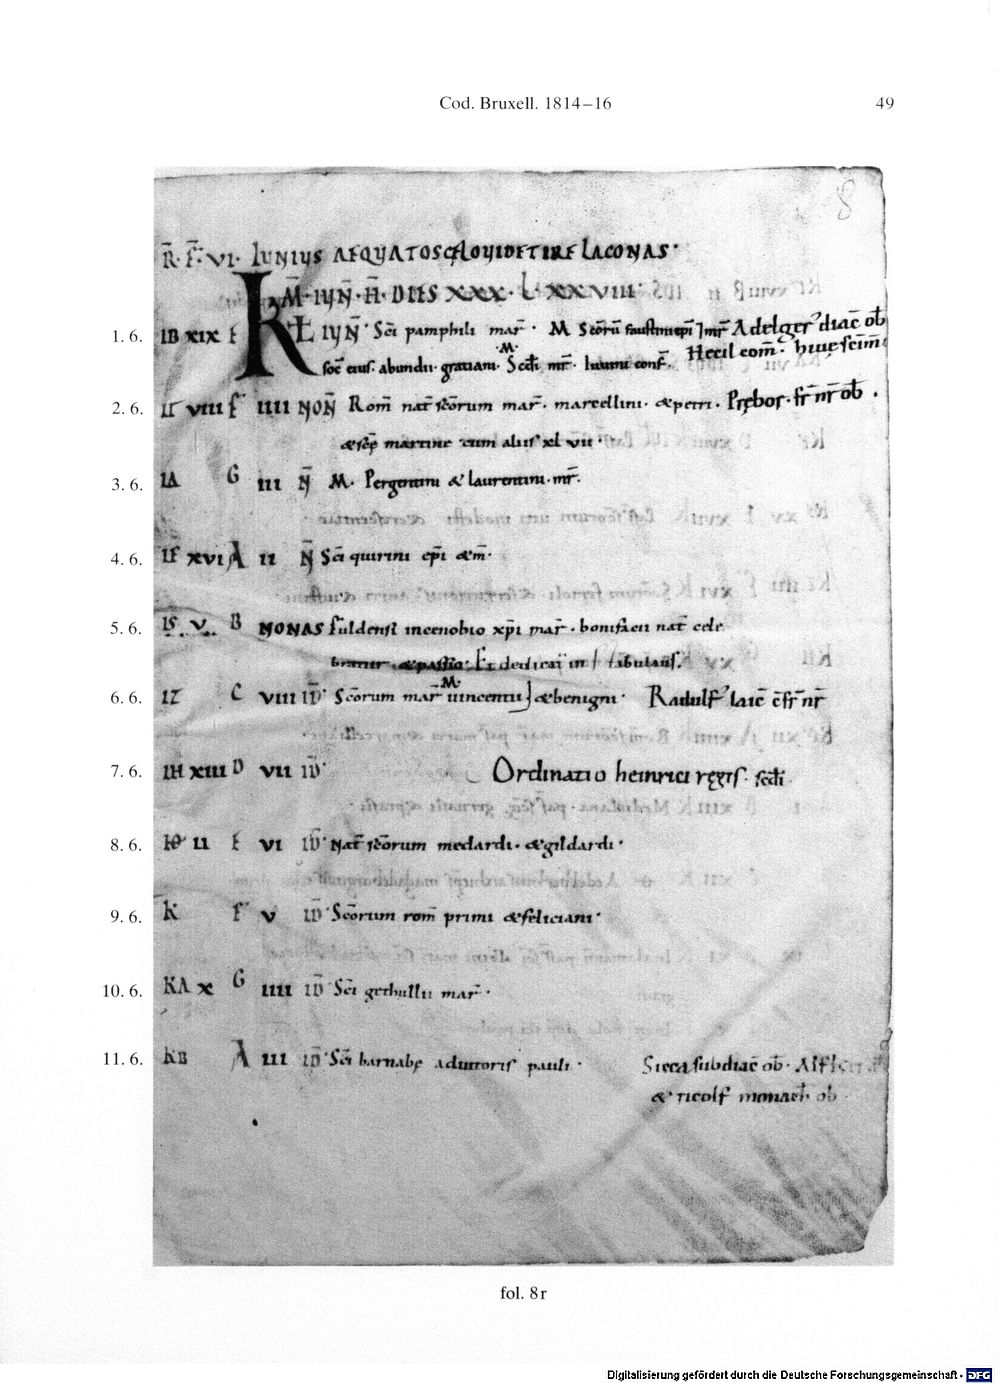 Cod. Bruxell. 1814–16
49
8
R̄. F̄. VI. IUNIUS AEQUATOS CAELO UIDET IRE LACONAS.
M̄. IUN̄. H̄. DIES XXX. L. XXVIII.
1. 6. IB XIX E KL̄ IUN̄. Sc̄i pamphili mar̄. M Sc̄orū faustini ep̄i mr̄ Adelger diac̄ ob̄
soc̄ eius. abundii. gratiani. M Secd̄i mr̄. Iuuini conf̄. Hecil com̄.
2. 6. VIII F IIII NON̄ Rom̄ nat̄ sc̄orum mar̄. marcellini. &petri. Prębor. fr̄ nr̄ ob̄.
martine cum aliis xl vii.
3. 6. IA G III N̄ M. Pergentini & laurentini. mr̄.
4. 6. IE XVI A II N̄ Sc̄i quirini ep̄i &m̄.
5. 6. V B NONAS Fuldensi incenobio xp̄i mar̄. bonifacii nat̄ cele
bratur. &passio. Et dedicat̄ in tabulaus̄.
6. 6. IZ C VIII ID̄ Sc̄orum mar̄ M uincentii &benigni. Radulf laic̄ c̄fr̄ nr̄
7. 6. IH XIII D VII ID̄. Ordinatio heinrici ręgis. sc̄di
8. 6. IΘ II E VI ID̄. Nat̄ sc̄orum medardi. &gildardi.
9. 6. K F V ID̄. Sc̄orum rom̄ primi &feliciani.
10. 6. KA X G IIII ID̄ Sc̄i gethullii mar̄.
11. 6. KB A III ID̄. Sc̄i barnabę adiutoris pauli. Sicca subdiac̄ ob̄.
& ricolf monach̄ ob̄
fol. 8r
Digitalisierung gefördert durch die Deutsche Forschungsgemeinschaft - DFG